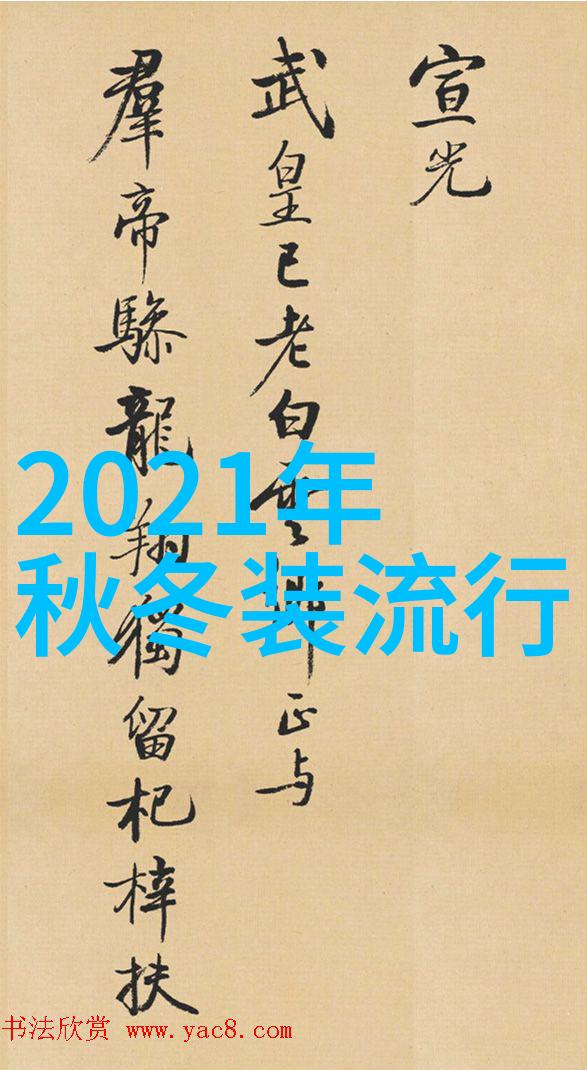 宣光
武皇已老白雲鄉正与
羣帝驂龍翔獨留杞梓扶
2021年
秋冬装流行
书法欣赏 www.yac8.com